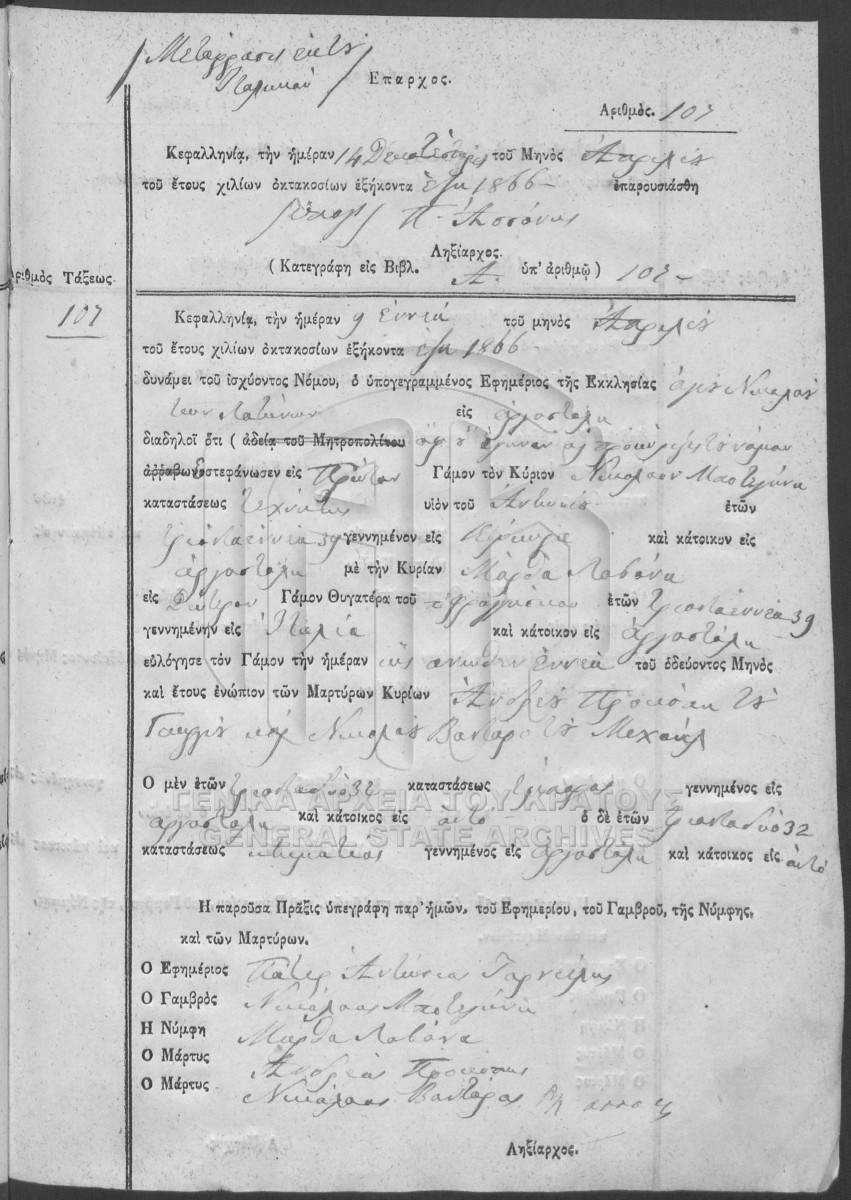 Μετάφρασις ἐκ τοῦ
Ἰταλικοῦ
Επαρχος.
Αριθμὸς. 107
Κεφαλληνία, τὴν ἡμέραν 14 Δεκατέσσαρες τοῦ Μηνὸς Ἀπριλίου
τοῦ ἔτους χιλίων ὀκτακοσίων ἑξήκοντα ἕξη 1866 - ἐπαρουσιάσθη
Π.
Ληξίαρχος.
( Κατεγράφη εἰς Βιβλ. Α. ὑπ' ἀριθμῷ ) 107 -
Αριθμὸς Τάξεως.
107
Κεφαλληνία, τὴν ἡμέραν 9 ἐννέα τοῦ μηνὸς Ἀπριλίου
τοῦ ἔτους χιλίων ὀκτακοσίων ἑξήκοντα ἕξη 1866 -
δυνάμει τοῦ ἰσχύοντος Νόμου, ὁ ὑπογεγραμμένος Εφημέριος τῆς Εκκλησίας ἁγίου Νικολάου
των Λατίνων εἰς ἀργοστόλι
διαδηλοῖ ὅτι ( ἀδείᾳ τοῦ Μητροπολίτου ἀφ' οὗ ἔγιναν αἱ προκηρύξεις τοῦ νόμου
ἀῤῥαβωνοστεφάνωσεν εἰς Πρώτον Γάμον τὸν Κύριον Νικόλαον Μποτελίνη
καταστάσεως τεχνίτης υἱὸν τοῦ Ἀντωνίου ἐτῶν
τριανταεννέα 39 γεννημένον εἰς Κέρκυρα καὶ κάτοικον εἰς
ἀργοστόλι μὲ τὴν Κυρίαν Μάρθα Λαβόνα
εἰς Δεύτερον Γάμον Θυγατέρα τοῦ π Φραγγίσκου ἐτῶν τριανταεννέα 39
γεννημένην εἰς Ἰταλία καὶ κάτοικον εἰς ἀργοστόλι
εὐλόγησε τὸν Γάμον τὴν ἡμέραν εἰς ἄνωθεν ἐννέα τοῦ ὁδεύοντος Μηνὸς
καὶ ἔτους ἐνώπιον τῶν Μαρτύρων Κυρίων Ἀνδρέου τοῦ
καὶ Νικολάου Βαντάρο τοῦ Μιχαήλ
Ο μὲν ἐτῶν τριανταδύο 32 καταστάσεως ἔμπορος γεννημένος εἰς
ἀργοστόλι καὶ κάτοικος εἰς αὐτό ὁ δὲ ἐτῶν τριανταδύο 32
καταστάσεως κτηματίας γεννημένος εἰς ἀργοστόλι καὶ κάτοικος εἰς αὐτό
ΓΕΝΙΚΑ ΑΡΧΕΙΑ ΤΟΥ ΚΡΑΤΟΥΣ
GENERAL STATE ARCHIVES
Η παροῦσα Πρᾶξις ὑπεγράφη παρ' ἡμῶν, τοῦ Εφημερίου, τοῦ Γαμβροῦ, τῆς Νύμφης,
καὶ τῶν Μαρτύρων.
Ο Εφημέριος Πάτερ Ἀντώνιος
Ο Γαμβρὸς Νικόλαος Μποτελίνη
Η Νύμφη Μάρθα Λαβόνα
Ο Μάρτυς Ἀνδρέας
Ο Μάρτυς Νικόλαος Βαντάρος
Ληξίαρχος.